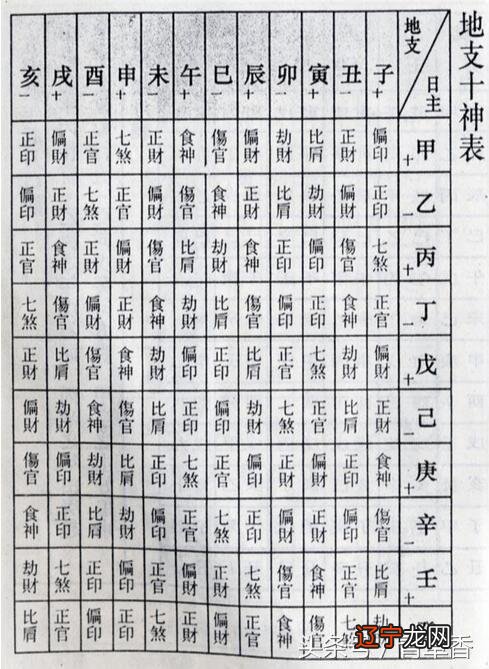 地支十神表
地支 日主
亥 戌 酉 申 未 午 巳 辰 卯 寅 丑 子
一 十 一 十 一 十 一 十 一 十 一 十
正印 偏財 正官 七煞 正財 食神 傷官 偏財 劫財 比肩 正財 偏印 甲 十
偏印 正財 七煞 正官 偏財 傷官 食神 正財 比肩 劫財 偏財 正印 乙 一
正官 食神 正財 偏財 傷官 比肩 劫財 食神 正印 偏印 傷官 七煞 丙 十
七煞 傷官 偏財 正財 食神 劫財 比肩 傷官 偏印 正印 食神 正官 丁 一
正財 比肩 傷官 食神 劫財 偏印 正印 比肩 正官 七煞 劫財 偏財 戊 十
偏財 劫財 食神 傷官 比肩 正印 偏印 劫財 七煞 正官 比肩 正財 己 一
傷官 偏印 劫財 比肩 正印 七煞 正官 偏印 正財 偏財 正印 食神 庚 十
食神 正印 比肩 劫財 偏印 正官 七煞 正印 偏財 正財 偏印 傷官 辛 一
劫財 七煞 正印 偏印 正官 偏財 正財 七煞 傷官 食神 正官 比肩 壬 十
比肩 正官 偏印 正印 七煞 正財 偏財 正官 食神 傷官 七
辽宁龙网